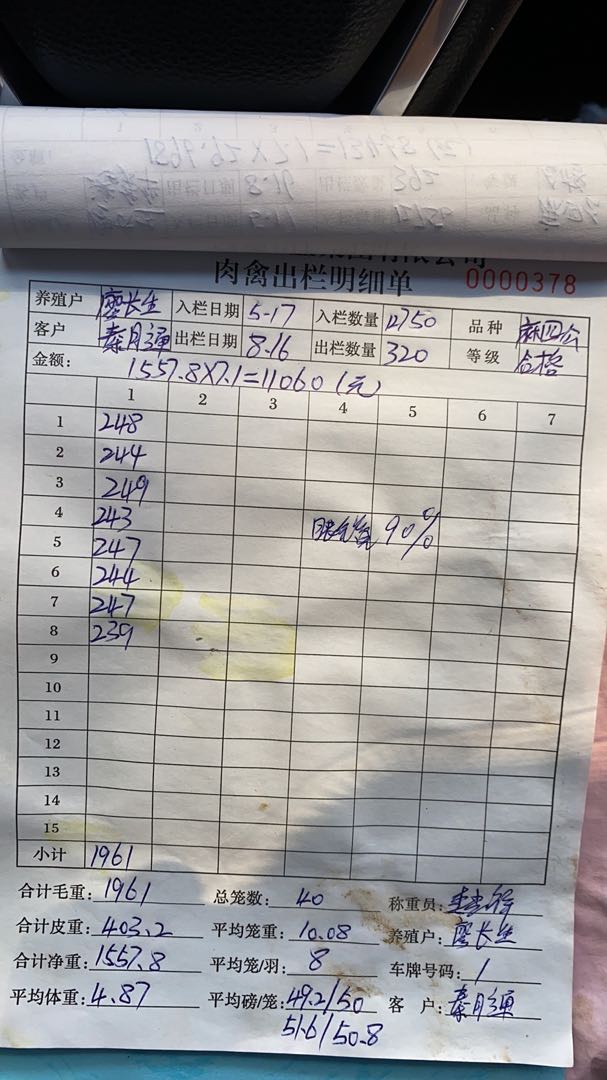 肉禽出栏明细单 0000378
养殖户 廖长生 入栏日期 5-17 入栏数量 12150 品种 麻四公
客户 秦月通 出栏日期 8.16 出栏数量 320 等级 合格
金额: 1557.8X7.1=11060(元)
1 2 3 4 5 6 7
1 248
2 244
3 249
4 243
90%
5 247
6 244
7 247
8 239
9
10
11
12
13
14
15
小计 1961
合计毛重: 1961 总笼数: 40 称重员:
合计皮重: 403.2 平均笼重: 10.08 养殖户: 廖长生
合计净重: 1557.8 平均笼/羽: 8 车牌号码: /
平均体重: 4.87 平均磅/笼: 49.2/50 客户: 秦月通
51.6/50.8